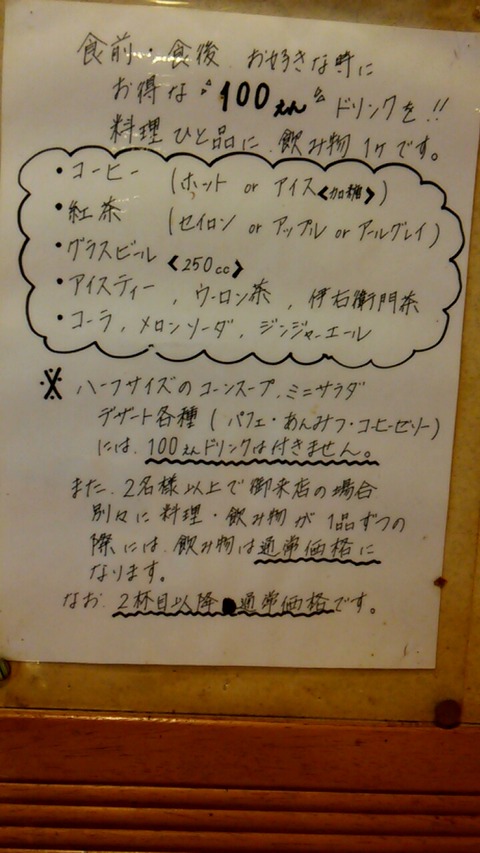 食前・食後 お好きな時に
お得な 100えん ドリンクを!!
料理ひと品に、飲み物1ヶです。
・コーヒー (ホット or アイス<加糖>)
・紅茶 (セイロン or アップル or アールグレイ)
・グラスビール <250cc>
・アイスティー, ウーロン茶, 伊右衛門茶
・コーラ, メロンソーダ, ジンジャーエール
※ ハーフサイズのコーンスープ, ミニサラダ
デザート各種 (パフェ・あんみつ・コーヒーゼリー)
には、100えんドリンクは付きません。
また、2名様以上で御来店の場合
別々に料理・飲み物が1品ずつの
際には、飲み物は通常価格に
なります。
なお、2杯目以降 通常価格です。